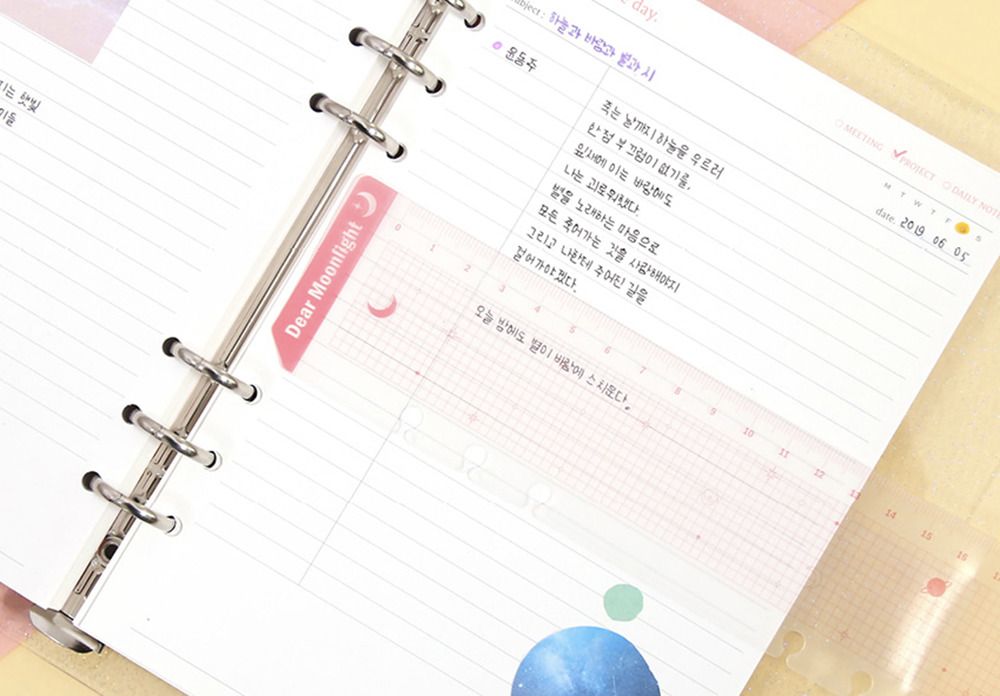 day.
subject : 하늘과 바람과 별과 시
윤동주
죽는 날까지 하늘을 우르러
한점 부끄럼이 없기를,
잎새에 이는 바람에도
나는 괴로워했다.
별을 노래하는 마음으로
모든 죽어가는 것을 사랑해야지
그리고 나한테 주어진 길을
걸어가야겠다.
오늘 밤에도 별이 바람에 스치운다.
MEETING PROJECT DAILY NOTE
M T W T F S
date. 2019 06 05
Dear Moonlight
0 1 2 3 4 5 6 7 8 9 10 11 12 13
14 15 16
는 햇빛
들